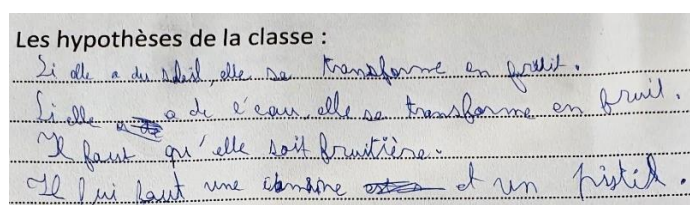 Les hypothèses de la classe :
Si elle a du soleil, elle se transforme en fruit.
Si elle a de l'eau, elle se transforme en fruit.
Il faut qu'elle soit fruitière.
Il lui faut une étamine et un pistil.